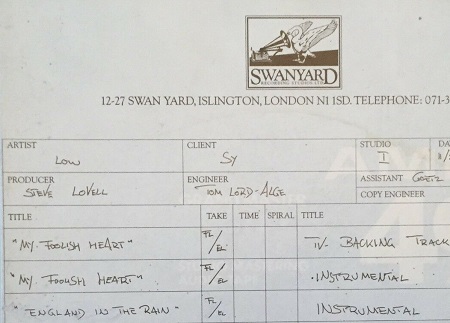 SWANYARD
RECORDING STUDIOS LTD
12-27 SWAN YARD, ISLINGTON, LONDON N1 1SD. TELEPHONE: 071-3
ARTIST CLIENT STUDIO DA
Low Sy I
PRODUCER ENGINEER ASSISTANT
STEVE LOVELL TOM LORD-ALGE COPY ENGINEER
TITLE TAKE TIME SPIRAL TITLE
"MY FOOLISH HEART" FL/EL TV BACKING TRACK
"MY FOOLISH HEART" FL/EL INSTRUMENTAL
"ENGLAND IN THE RAIN" FL/EL INSTRUMENTAL